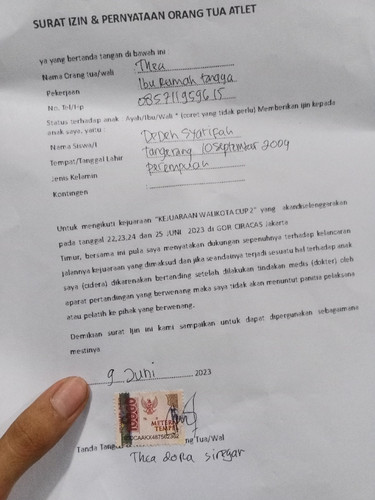 SURAT IZIN & PERNYATAAN ORANG TUA ATLET
ya yang bertanda tangan di bawah ini :
Nama Orang tua/wali : Thea
Pekerjaan : Ibu Rumah tangga
No. Tel/Hp : 085711959615
Status terhadap anak : Ayah/Ibu/Wali * (coret yang tidak perlu) Memberikan ijin kepada
anak saya, yaitu :
Nama Siswa/i : Depeh Syarifah
Tempat/Tanggal Lahir : tangerang 10 September 2009
Jenis Kelamin : perempuan
Kontingen :
Untuk mengikuti kejuaraan "KEJUARAAN WALIKOTA CUP 2" yang akandiselenggarakan
pada tanggal 22,23,24 dan 25 JUNI 2023 di GOR CIRACAS Jakarta
Timur, bersama ini pula saya menyatakan dukungan sepenuhnya terhadap kelancaran
jalannya kejuaraan yang dimaksud dan jika seandainya terjadi sesuatu hal terhadap anak
saya (cidera) dikarenakan bertanding setelah dilakukan tindakan medis (dokter) oleh
aparat pertandingan yang berwenang maka saya tidak akan menuntut panitia pelaksana
atau pelatih ke pihak yang berwenang.
Demikian surat Ijin ini kami sampaikan untuk dapat dipergunakan sebagaimana
mestinya
9 Juni 2023
10000
METERAI
TEMPEL
Tanda Tang ng Tua/Wal
Thea dora siregar